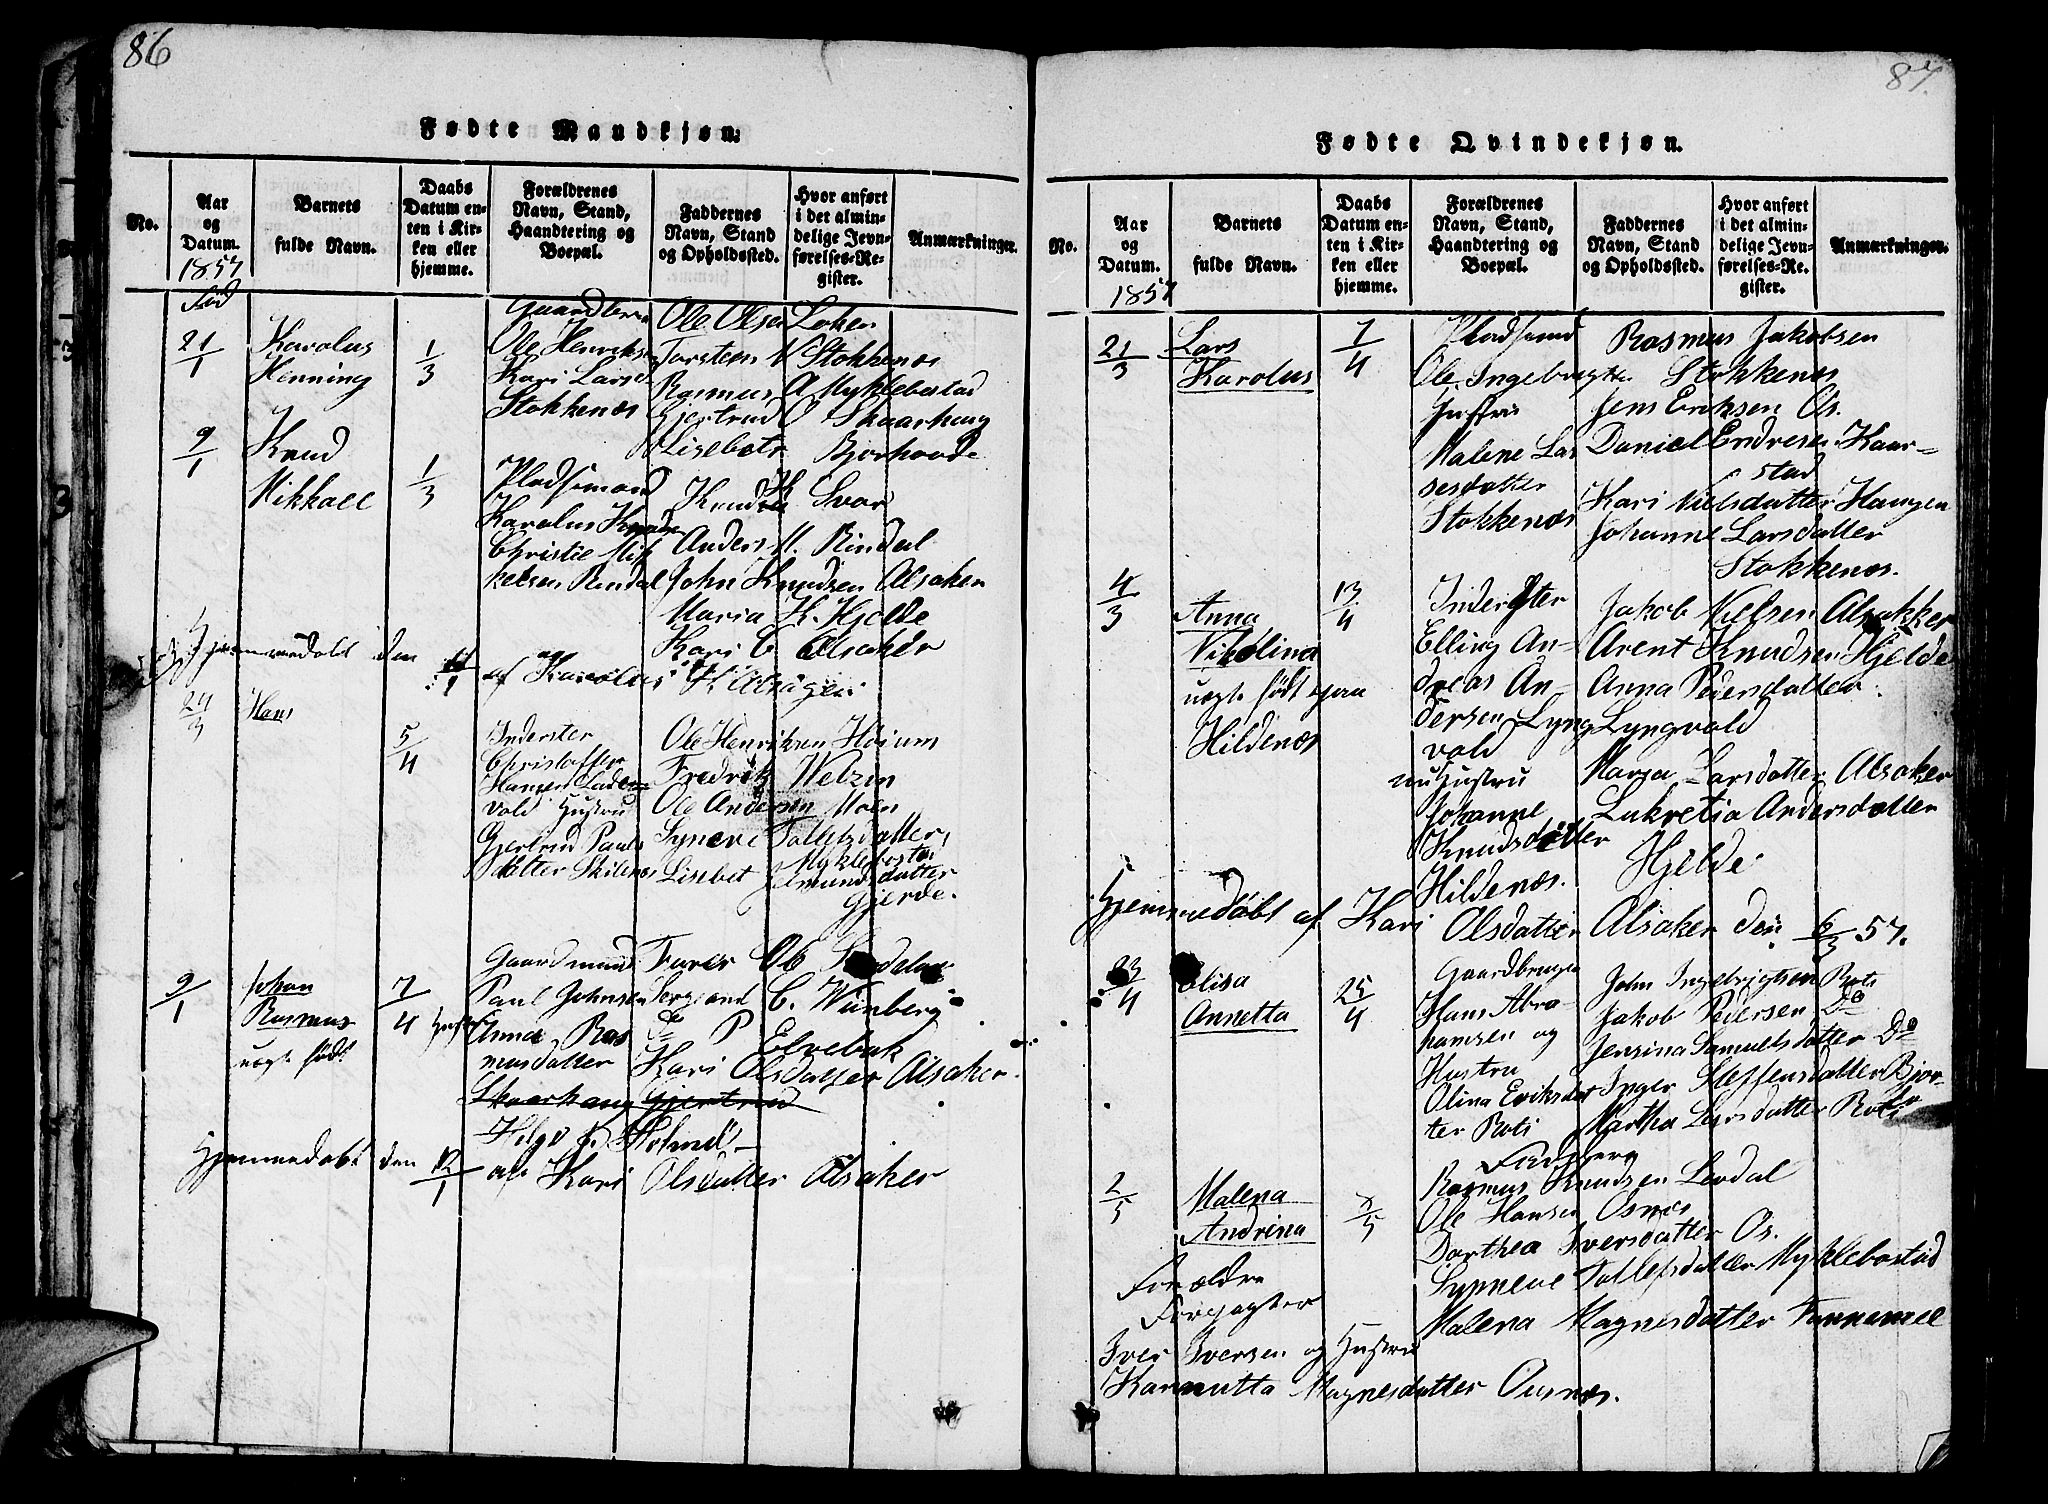 86
Fødte Mandkjøn.
No.
Aar og Datum.
1857
Barnets fulde Navn.
Daabs Datum enten i Kirken eller hjemme.
Forældrenes Navn, Stand, Haandtering og Boepæl.
Faddernes Navn, Stand og Opholdssted.
Hvor anført i det almindelige Jevnførelses-Register.
Anmærkninger.
Fød
21/1
Karolus
Henning
1/3
Ole Henriks
Kari Lars
Stokkenæs
Ole Olsen Loken
Torsten N Stokkenæs
Rasmus A Myklebostad
Gjertrud O Skaarhaug
Lisebet
9/1
Knud
Mikkael
1/3
Pladsmand
Karolus
Christie Mik
kelsen Rindal
Anders M. Rindal
John Knudsen Alsaker
Maria K. Hjelde
Kari C Alsaker
Hjemmedøbt den
af Karolus K
24/3
Hans
5/4
Inderster
Christoffer
Hansen
vold Hustru
Gjertrud Pauls
datter
Ole Henriksen Hoium
Fredrik Welzin
Ole Andersen Moen
Synneve Tollefsdatter
Myklebostad
Lisebet Amundsdatter
Gjerde.
9/1
Johan
Rasmus
uegte født
7/4
Gaardmand
Paul Johnsen
Hustru Anna Ras
musdatter
Skaarhaug Gjertrud
Furer Ob
Sergeand C. Wiinberg
P Elvebak
Kari Olsdatter Alsaker
Helge
Hjemmedøbt den 12/1 af Kari Olsdatter Alsaker
87.
Fødte Qvindekjøn.
No.
Aar og Datum.
1857
Barnets fulde Navn.
Daabs Datum enten i Kirken eller hjemme.
Forældrenes Navn, Stand, Haandtering og Boepæl.
Faddernes Navn, Stand og Opholdssted.
Hvor anført i det almindelige Jevnførelses-Register.
Anmærkninger.
21/3
Lars
Karolus
7/4
Pladsmand
Ole Ingebrigts
Hustru
Malene Lar
sesdatter
Stokkenæs
Rasmus Jakobsen
Stokkenæs
Jens Eriksen Os.
Daniel Endresen Kaar-
stad
Kari Nielsdatter Haugen
Johanne Larsdatter
Stokkenæs.
4/3
Anna
Nikolina
uegte født
Hildenæs
13/4
Inderster
Elling An-
dreas An-
dersen Lyng
vold
Hustru
Johanne
Knudsdatter
Hildenæs.
Jakob Nielsen Alsakker
Arent Knudsen Hjelde
Anna Pedersdatter
Lyngvold
Maria Larsdatter Alsaker
Lukretia Andersdatter
Hjelde
Hjemmedøbt af Kari Olsdatter Alsaker den 6/3 57.
23/4
Elisa
Annetta
25/4
Gaardbruger
Hans Abra-
hamsen og
Hustru
Olina Eriksdat
ter Roti
John Ingebrigtsen Roti
Jakob Pedersen Do
Jensina Samuelsdatter Do
Inger Steffensdatter Bjor-
Martha Larsdatter Roti
2/5
Malena
Andrina
/5
Rasmus Knudsen Lerdal
Ole Hansen Osnæs
Dorthea Iversdatter Os.
Synneve Tollefsdatter Myklebostad
Malena Magnesdatter
Forældre
Iver Iversen og Hustru
Magnesdatter Ousnæs.